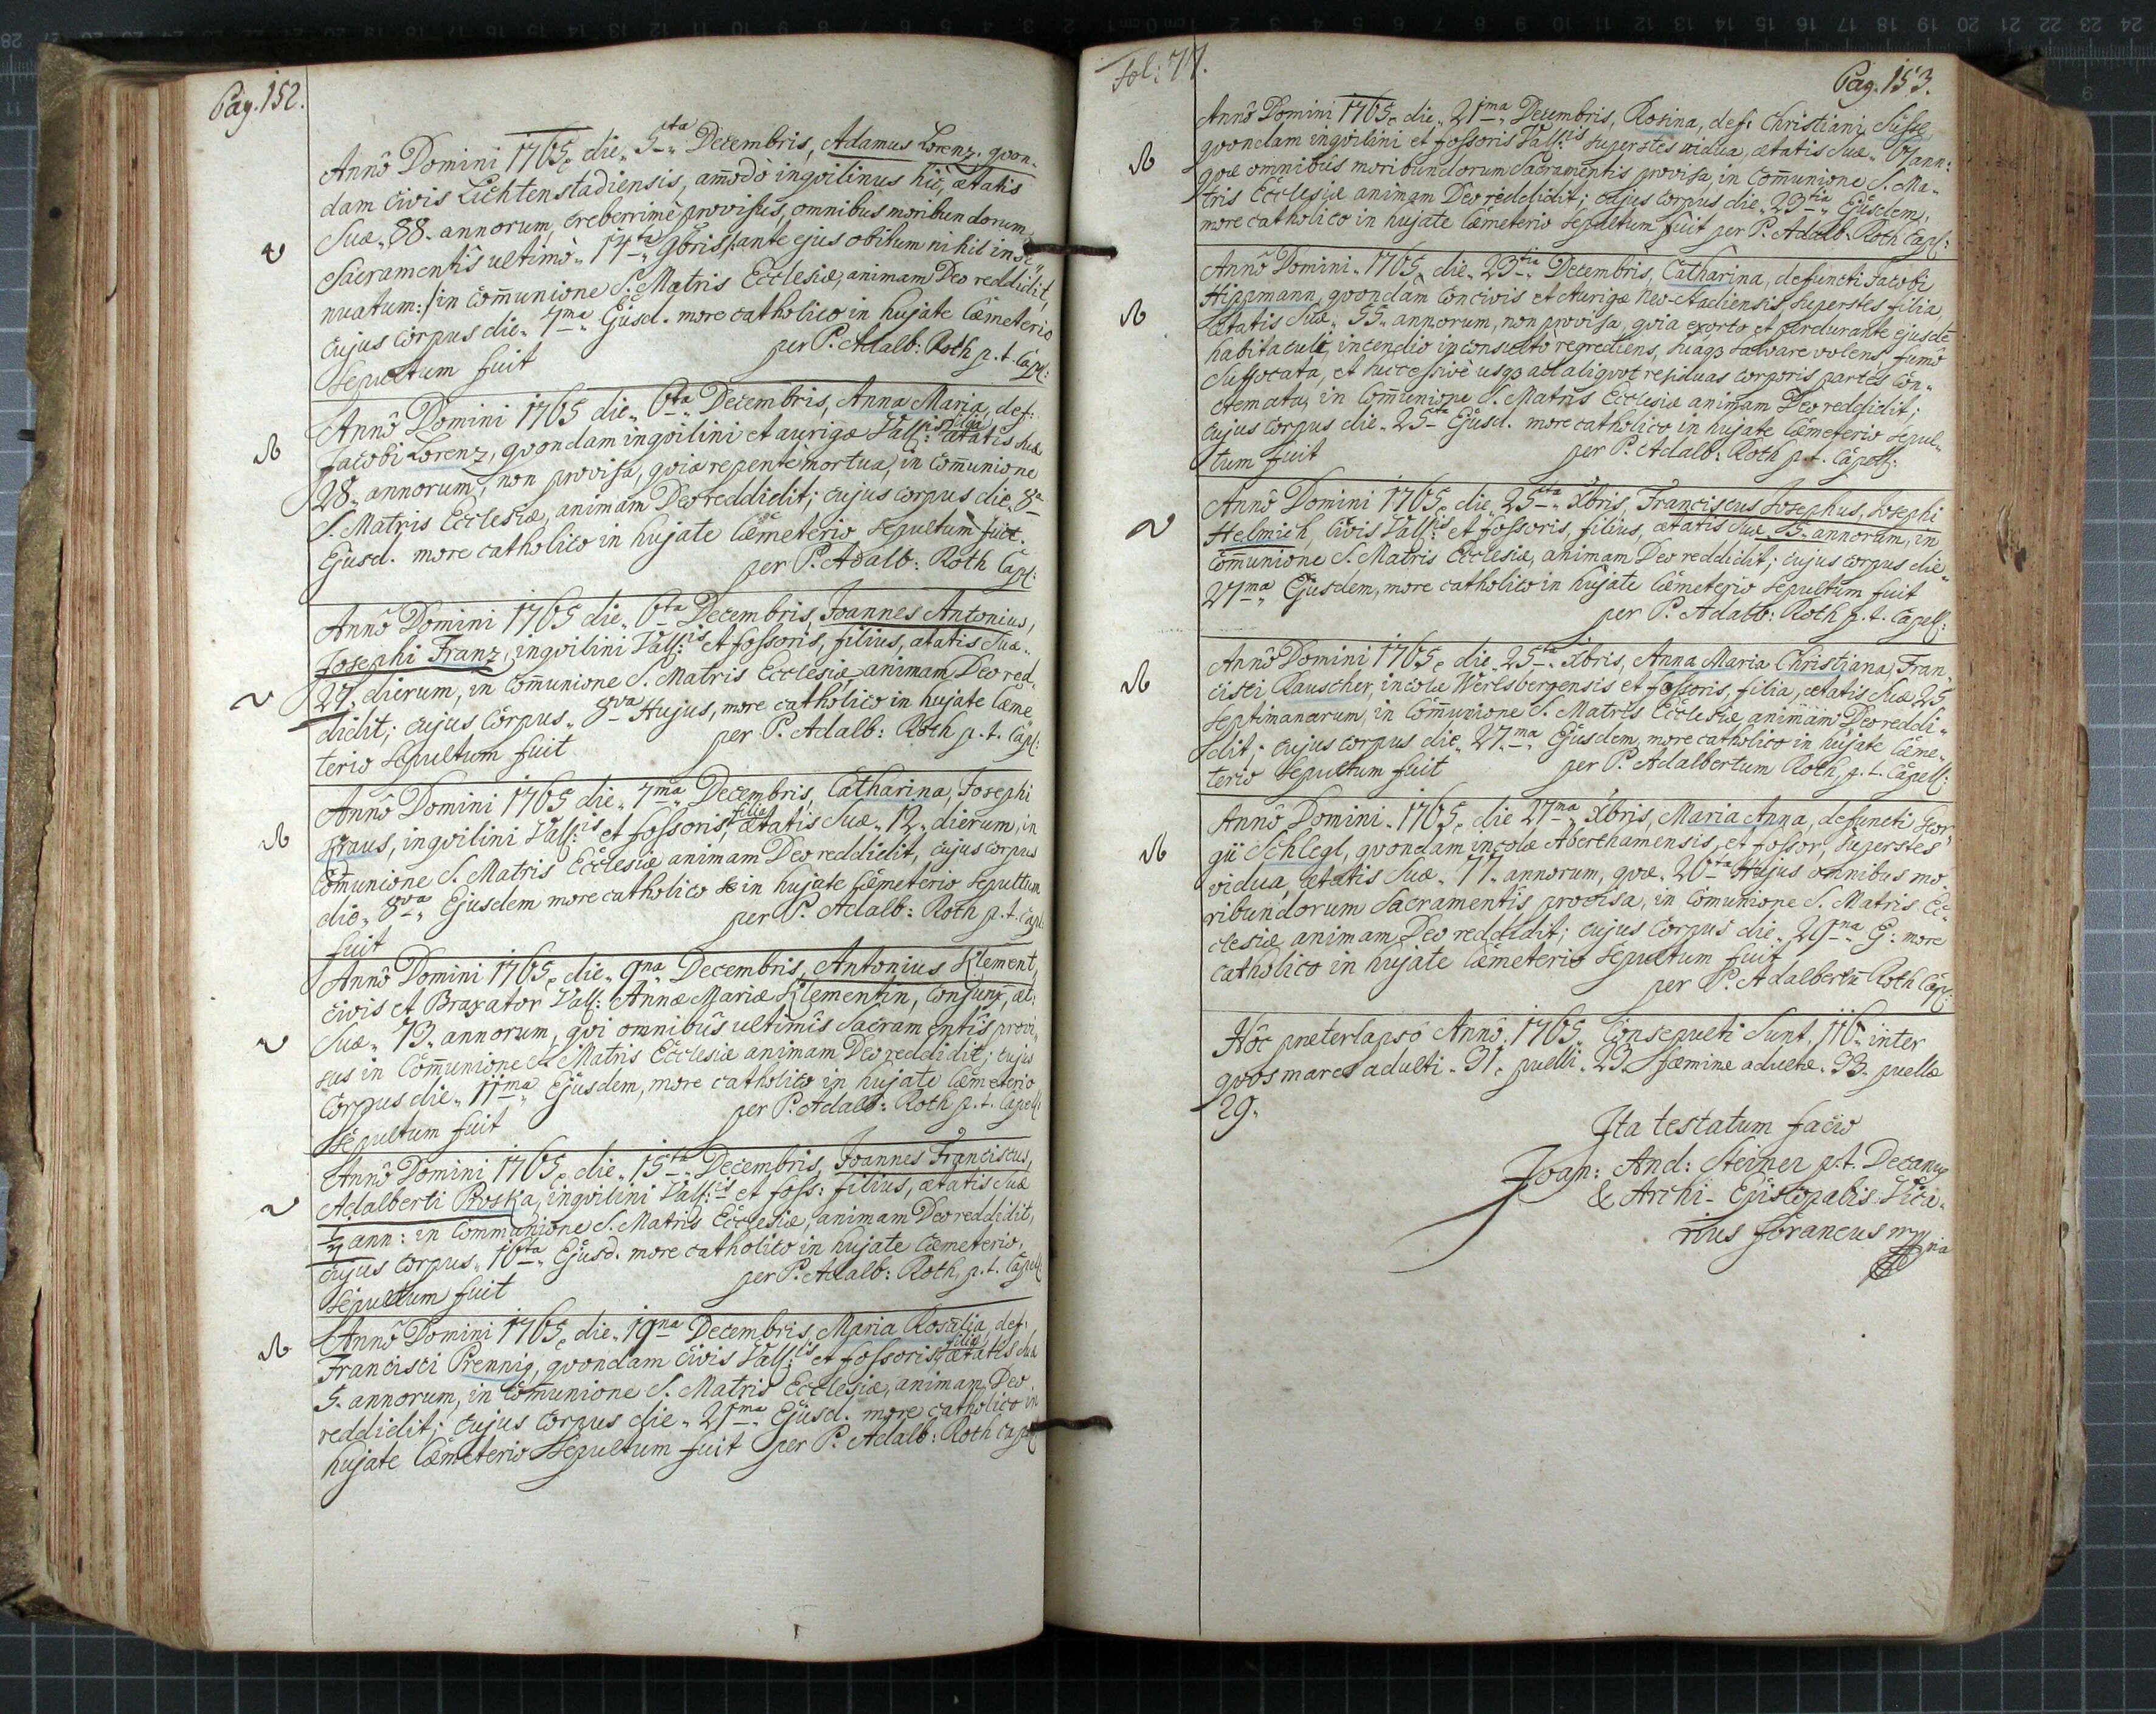 Pag. 152.
Annô Domini 1765, die 5ta Decembris, Adamus Lorenz, qvon-
dam civis Lichtenstadiensis, amodò inqvilinus hic, ætatis
suæ 88 annorum, creberrimè provisus, omnibus moribundorum
Sacramentis ultimò 14ta 9bris /:ante ejus obitum nihil insi-
nuatum:/ in Com̄unione S. Matris Ecclesiæ, animam Deo reddidit,
cujus corpus die 7ma Ejusd. more catholico in hujate Cæmeterio
sepultum fuit per P. Adalb: Roth p. t. Capl:
Annô Domini 1765 die 6ta Decembris, Anna Maria, def:
Jacobi Lorenz, qvondam inqvilini et aurigæ Vall:is filia ætatis suæ
28 annorum, non provisa, qvia repentè mortua, in Com̄unione
S. Matris Ecclesiæ, animam Deo reddidit; cujus corpus die 8a
Ejusd. more catholico in hujate Cæmeterio sepultum fuit.
per P. Adalb: Roth Capl:
Annô Domini 1765 die 6ta Decembris, Joannes Antonius,
Josephi Franz, inqvilini Vall:is et fossoris, filius, ætatis suæ
27 dierum, in Com̄unione S. Matris Ecclesiæ animam Deo red-
didit; cujus Corpus 8va Hujus, more catholico in hujate Cæme
terio sepultum fuit per P. Adalb: Roth p. t. Capl:
Annô Domini 1765 die 7ma Decembris, Catharina, Josephi
Kraus, inqvilini Vall:is et fossoris, filia ætatis suæ 12 dierum, in
Com̄unione S. Matris Ecclesiæ animam Deo reddidit, cujus corpus
die 8va Ejusdem more catholico in hujate Cæmeterio sepultum
fuit per P. Adalb: Roth p. t. Capl:
Annô Domini 1765, die 9na Decembris, Antonius Klement,
civis et Braxator Vall: Annæ Mariæ Klementin, Conjunx, æt:
suæ 73 annorum, qvi omnibus ultimis Sacramentis provi-
sus in Com̄unione S. Matris Ecclesiæ animam Deo reddidit; cujus
Corpus die 11ma Ejusdem, more catholico in hujate Cæmeterio
sepultum fuit per P. Adalb: Roth p. t. Capell:
Annô Domini 1765, die 15ta Decembris, Joannes Franciscus,
Adalberti Proska, inqvilini Vall:is et foss: filius, ætatis suæ
ann: in Communione S. Matris Ecclesiæ, animam Deo reddidit,
cujus corpus 16ta Ejusd. more catholico in hujate Cæmeterio,
sepultum fuit per P. Adalb: Roth, p. t. Capell
Annô Domini 1765, die 19na Decembris, Maria Rosalia, def:
Francisci Prennig, qvondam civis Vall:is et fossoris, filia ætatis suæ
5 annorum, in Com̄unione S. Matris Ecclesiæ, animam Deo
reddidit; cujus Corpus die 21ma Ejusd. more catholico in
hujate Cæmeterio sepultum fuit per P. Adalb: Roth Capell
Fol: 77. Pag. 153.
Annô Domini 1765, die 21ma Decembris, Rosina, def: Christiani Süsse
qvondam inqvilini et fossoris Vall:is superstes vidua, ætatis suæ 67 ann:
qvæ omnibus moribundorum Sacramentis provisa, in Com̄unione S. Ma-
tris Ecclesiæ animam Deo reddidit; cujus corpus die 23tia Ejusdem,
more catholico in hujate Cæmeterio sepultum fuit per P. Adalb: Roth Capl:
Annô Domini 1765, die 23tia Decembris, Catharina, defuncti Jacobi
Hippmann, qvondam Concivis et Aurigæ Neo-stadiensis, superstes filia,
ætatis suæ 55 annorum, non provisa, qvia exorto et perdurante ejusdē
habitaculi incendio inconsultò regrediens, suaqz salvare volens, fumô
suffocata, et successivè usqz ad aliqvot residuas corporis partes con-
cremata, in Com̄unione S. Matris Ecclesiæ animam Deo reddidit;
cujus corpus die 25ta Ejusd. more catholico in hujate Cæmeterio sepul-
tum fuit per P. Adalb: Roth p. t. Capell:
Annô Domini 1765, die 25ta Xbris, Franciscus Josephus, Josephi
Helmich, Civis Vall:is et fossoris, filius, ætatis suæ 15 annorum, in
Com̄unione S. Matris Ecclesiæ, animam Deo reddidit; cujus corpus die
27ma Ejusdem, more catholico in hujate Cæmeterio sepultum fuit
per P. Adalb: Roth p. t. Capell:
Annô Domini 1765, die 25ta Xbris, Anna Maria Christiana, Fran-
cisci Rauscher, incolæ Werlsbergensis et fossoris, filia, ætatis suæ 25
septimanarum, in Com̄unione S. Matris Ecclesiæ animam Deo reddi-
dit; cujus corpus die 27ma Ejusdem, more catholico in hujate Cæme-
terio sepultum fuit per P. Adalbertum Roth, p. t. Capell:
Annô Domini 1765, die 27ma Xbris, Maria Anna, defuncti Geor
gii Schlegl, qvondam incolæ Aberthamensis, et fossor, superstes
vidua, ætatis suæ 77 annorum, qvæ 26ta Hujus omnibus mo-
ribundorum Sacramentis provisa, in Com̄unione S. Matris Ec-
clesiæ animam Deo reddidit; cujus Corpus die 29na Ej: more
catholico in hujate Cæmeterio sepultum fuit
per P. Adalbertū Roth Capl:
Hôc præterlapsô Annô 1765 Consepulti sunt 116 inter
qvos mares adulti 31 puelli 23 fæminæ adultæ 33 puellæ
29.
Ita testatum facio
Joan: And: Steiner p. t. Decanus
& Archi-Episcopalis Vica-
rius foraneus mppria